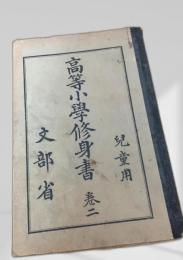 兒童用
高等小學修身書 卷二
文部省